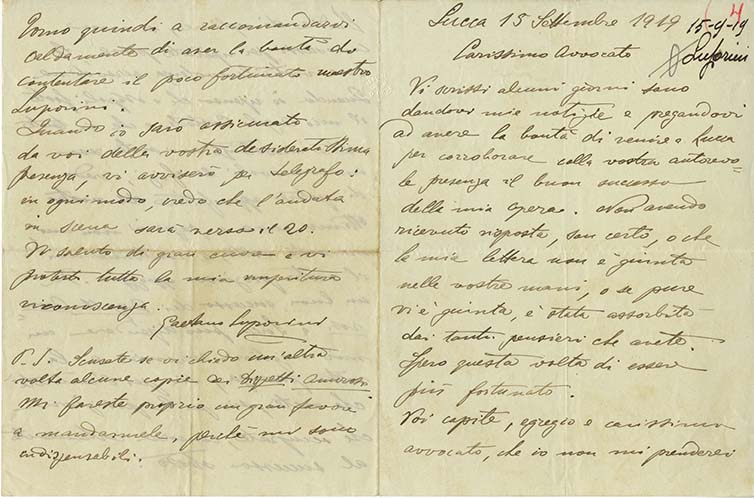 Lucca 15 Settembre 1919
4
15-9-19
Luporini
Carissimo Avvocato
Vi scrissi alcuni giorni sono
dandovi mie notizie e pregandovi
ad avere la bontà di venire a Lucca
per corroborare colla vostra autorevo-
le presenza il buon successo
della mia opera. Non avendo
ricevuto risposta, son certo, o che
la mia lettera non è giunta
nelle vostre mani, o se pure
vi è giunta, è stata assorbita
dai tanti pensieri che avete.
Spero questa volta di essere
più fortunato.
Voi capite, egregio e carissimo
avvocato, che io non mi prenderei
Torno quindi a raccomandarvi
caldamente di aver la bontà di
contentare il poco fortunato maestro
Luporini.
Quando io sarò assicurato
da voi della vostra desideratissima
presenza, vi avviserò per telegrafo:
in ogni modo, credo che l'andata
in scena sarà verso il 20.
Vi saluto di gran cuore e vi
protesto tutta la mia imperitura
riconoscenza.
Gaetano Luporini
P.S. Scusate se vi chiedo un'altra
volta alcune copie dei Dispetti Amorosi
Mi fareste proprio un gran favore
a mandarmele, perchè mi sono
indispensabili.